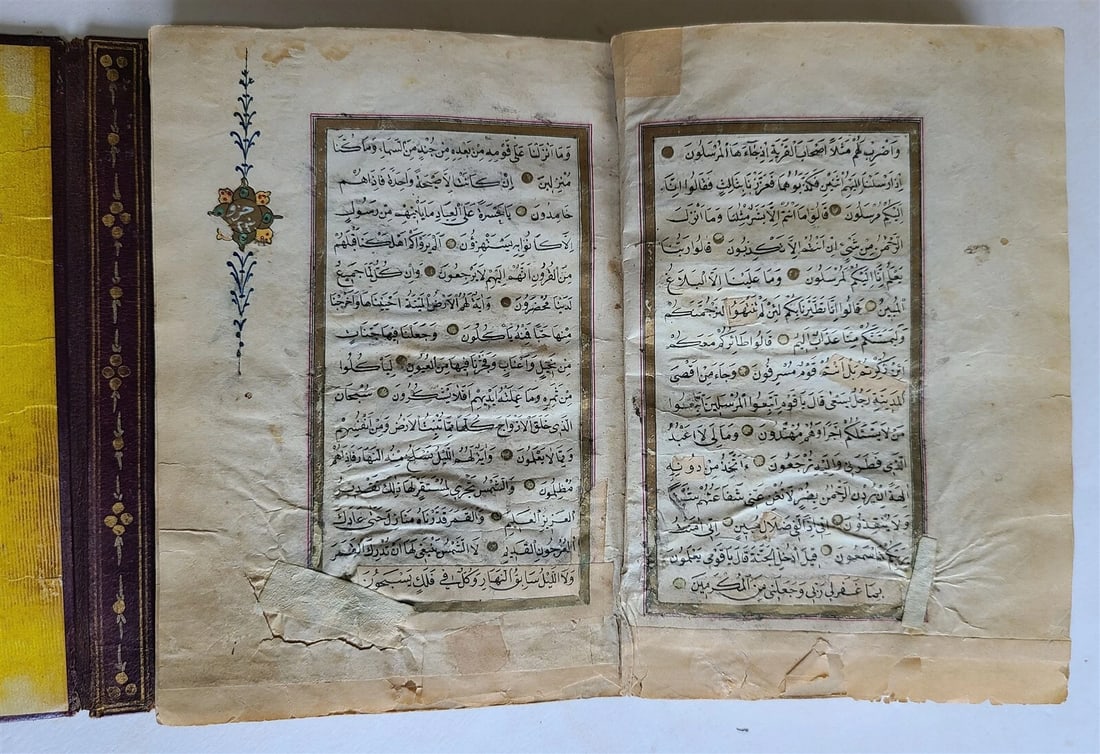 وَاضْرِبْ لَهُمْ مَثَلًا اَصْحَابَ الْقَرْيَةِ اِذْ جَاءَهَا الْمُرْسَلُونَ
اِذْ اَرْسَلْنَا اِلَيْهِمُ اثْنَيْنِ فَكَذَّبُوهُمَا فَعَزَّزْنَا بِثَالِثٍ فَقَالُوا اِنَّا
اِلَيْكُمْ مُرْسَلُونَ قَالُوا مَا اَنْتُمْ اِلَّا بَشَرٌ مِثْلُنَا وَمَا اَنْزَلَ
الرَّحْمٰنُ مِنْ شَيْءٍ اِنْ اَنْتُمْ اِلَّا تَكْذِبُونَ قَالُوا رَبُّنَا
يَعْلَمُ اِنَّا اِلَيْكُمْ لَمُرْسَلُونَ وَمَا عَلَيْنَا اِلَّا الْبَلَاغُ
الْمُبِينُ قَالُوا اِنَّا تَطَيَّرْنَا بِكُمْ لَئِنْ لَمْ تَنْتَهُوا لَنَرْجُمَنَّكُمْ
وَلَيَمَسَّنَّكُمْ مِنَّا عَذَابٌ اَلِيمٌ قَالُوا طَائِرُكُمْ مَعَكُمْ
اَئِنْ ذُكِّرْتُمْ بَلْ اَنْتُمْ قَوْمٌ مُسْرِفُونَ وَجَاءَ مِنْ اَقْصَى
الْمَدِينَةِ رَجُلٌ يَسْعَى قَالَ يَا قَوْمِ اتَّبِعُوا الْمُرْسَلِينَ اتَّبِعُوا
مَنْ لَا يَسْئَلُكُمْ اَجْرًا وَهُمْ مُهْتَدُونَ وَمَا لِيَ لَا اَعْبُدُ
الَّذِي فَطَرَنِي وَاِلَيْهِ تُرْجَعُونَ ءَاَتَّخِذُ مِنْ دُونِهِ
اٰلِهَةً اِنْ يُرِدْنِ الرَّحْمٰنُ بِضُرٍّ لَا تُغْنِ عَنِّي شَفَاعَتُهُمْ شَيْئًا
وَلَا يُنْقِذُونَ اِنِّي اِذًا لَفِي ضَلَالٍ مُبِينٍ اِنِّي اٰمَنْتُ
بِرَبِّكُمْ فَاسْمَعُونِ قِيلَ ادْخُلِ الْجَنَّةَ قَالَ يَا لَيْتَ قَوْمِي يَعْلَمُونَ
بِمَا غَفَرَ لِي رَبِّي وَجَعَلَنِي مِنَ الْمُكْرَمِينَ
وَمَا اَنْزَلْنَا عَلَى قَوْمِهِ مِنْ بَعْدِهِ مِنْ جُنْدٍ مِنَ السَّمَاءِ وَمَا كُنَّا
مُنْزِلِينَ اِنْ كَانَتْ اِلَّا صَيْحَةً وَاحِدَةً فَاِذَا هُمْ
خَامِدُونَ يَا حَسْرَةً عَلَى الْعِبَادِ مَا يَأْتِيهِمْ مِنْ رَسُولٍ
اِلَّا كَانُوا بِهِ يَسْتَهْزِؤُنَ اَلَمْ يَرَوْا كَمْ اَهْلَكْنَا قَبْلَهُمْ
مِنَ الْقُرُونِ اَنَّهُمْ اِلَيْهِمْ لَا يَرْجِعُونَ وَاِنْ كُلٌّ لَمَّا جَمِيعٌ
لَدَيْنَا مُحْضَرُونَ وَاٰيَةٌ لَهُمُ الْاَرْضُ الْمَيْتَةُ اَحْيَيْنَاهَا وَاَخْرَجْنَا
مِنْهَا حَبًّا فَمِنْهُ يَأْكُلُونَ وَجَعَلْنَا فِيهَا جَنَّاتٍ
مِنْ نَخِيلٍ وَاَعْنَابٍ وَفَجَّرْنَا فِيهَا مِنَ الْعُيُونِ لِيَأْكُلُوا
مِنْ ثَمَرِهِ وَمَا عَمِلَتْهُ اَيْدِيهِمْ اَفَلَا يَشْكُرُونَ سُبْحَانَ
الَّذِي خَلَقَ الْاَزْوَاجَ كُلَّهَا مِمَّا تُنْبِتُ الْاَرْضُ وَمِنْ اَنْفُسِهِمْ
وَمِمَّا لَا يَعْلَمُونَ وَاٰيَةٌ لَهُمُ الَّيْلُ نَسْلَخُ مِنْهُ النَّهَارَ فَاِذَا هُمْ
مُظْلِمُونَ وَالشَّمْسُ تَجْرِي لِمُسْتَقَرٍّ لَهَا ذٰلِكَ تَقْدِيرُ
الْعَزِيزِ الْعَلِيمِ وَالْقَمَرَ قَدَّرْنَاهُ مَنَازِلَ حَتَّى عَادَ كَ
الْعُرْجُونِ الْقَدِيمِ لَا الشَّمْسُ يَنْبَغِي لَهَا اَنْ تُدْرِكَ الْقَمَرَ
وَلَا الَّيْلُ سَابِقُ النَّهَارِ وَكُلٌّ فِي فَلَكٍ يَسْبَحُونَ